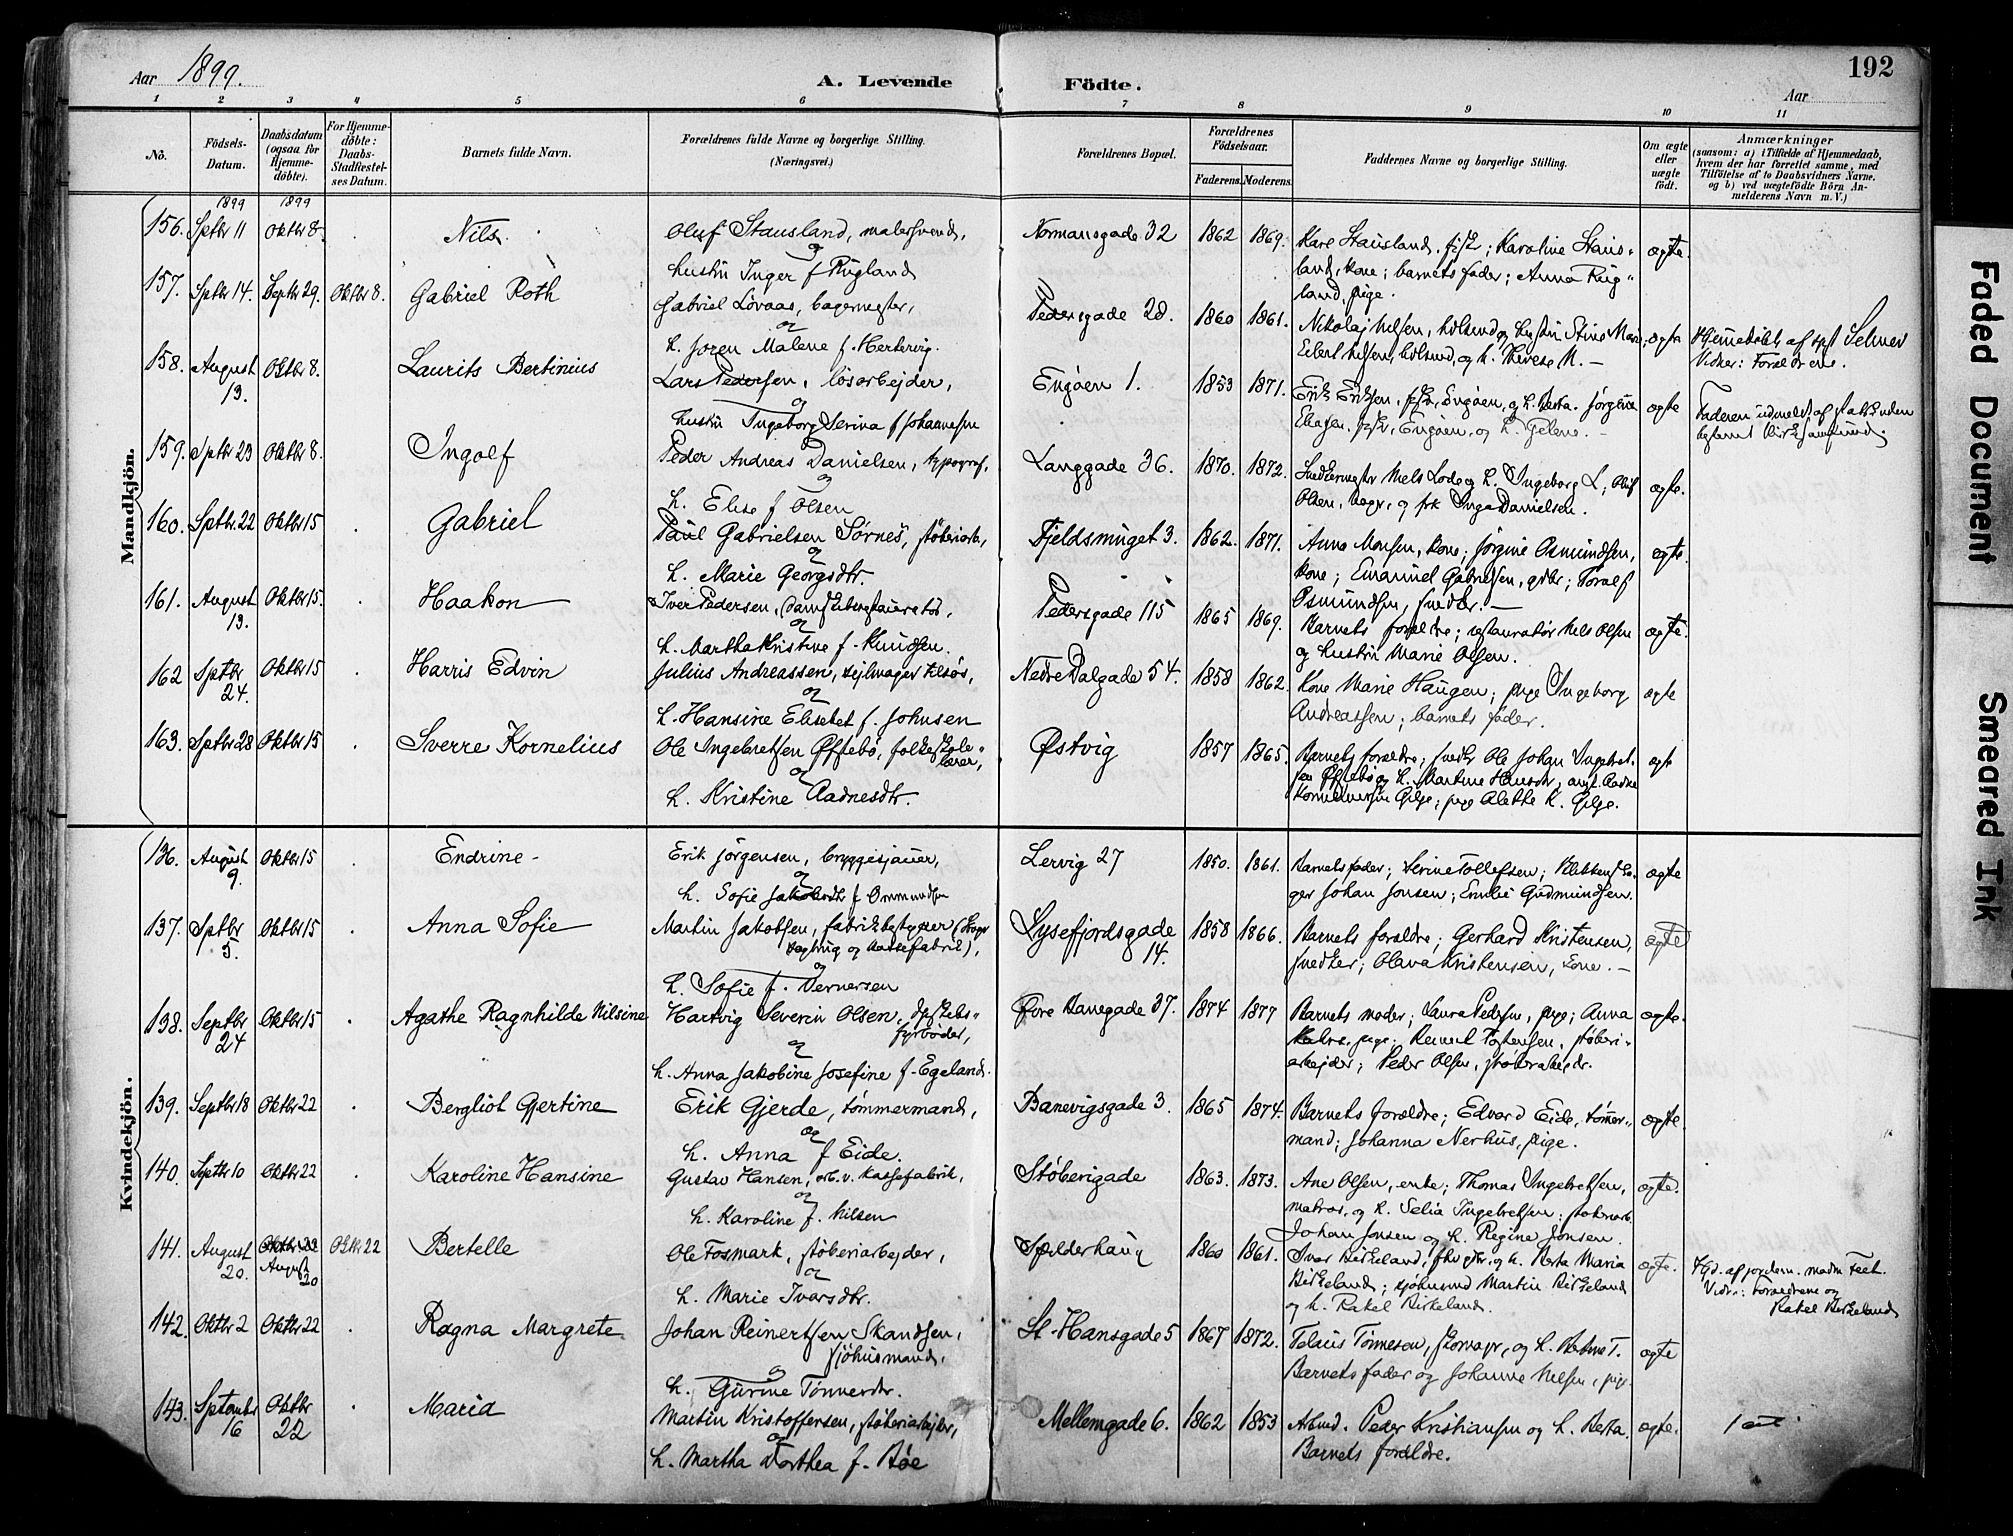 192
Aar 1899.
A. Levende Födte.
Aar
1 2 3 4 5 6 7 8 9 10 11
No.
Födsels-Datum.
Daabsdatum (ogsaa for Hjemme-döbte).
For Hjemme-döbte: Daabs-Stadfæstel-ses Datum.
Barnets fulde Navn.
Forældrenes fulde Navne og borgerlige Stilling. (Næringsvei.)
Forældrenes Bopæl.
Forældrenes Födselsaar.
Faderens. Moderens.
Faddernes Navne og borgerlige Stilling.
Om ægte eller uægte födt.
Anmærkninger
(saasom: a) i Tilfælde af Hjemmedaab, hvem der har forrettet samme, med Tilföielse af to Daabsvidners Navne. og b) ved uægtefödte Börn An-melderens Navn m.V.)
Mandkjön.
1899 1899
156. Sptbr 11 Oktbr 8. Nils. Oluf Stausland, malersvend, og hustru Inger f Rugland
Normansgade 32 1862 1869. Kare Stausland, ; Karoline Staus-
land, kone; barnets fader; Anna Rug-
land, pige. ægte
157. Sptbr 14. Septbr 29. Oktbr 8. Gabriel Roth Gabriel Lovaas, bagermester, og h. Joren Malene f. Hertervig.
Pedersgade 28. 1860 1861. Nikolaj Nelsen, og hustru Stine Marie,
og h. Therese N. — ægte Hjemmedöbt af Selmer
Vidner: Forældrene.
158. August 13. Oktbr 8. Laurits Bertinius Lars Pedersen, lösarbejder, og hustru Ingeborg Serina f Johannesen
Engöen 1. 1853 1871. Erik Eriksen, Engöen, og h. Berta. Jörgine
Engöen, og h. Gelene. — ægte Faderen udmeldt af statskirken
159. Sptbr 23 Oktbr 8. Ingolf Peder Andreas Danielsen, typograf, og h. Elise f Olsen
Langgade 36. 1870. 1872. Nels Lode og h. Ingeborg L; Oluf
Olsen, og frk Inga Danielsen. ægte.
160. Sptbr. 22 Oktbr 15 Gabriel Paul Gabrielsen Sörnes, stöberiarb, og h. Marie Georgsdtr.
Fjeldsmuget 3. 1862. 1871. Anna Monsen, kone; Jörgine Osmundsen,
kone; Emanuel Gabrielsen, ; Toralf
Osmundsen, snedker. — ægte
161. August 13. Oktbr 15. Haakon Iver Pedersen, og h. Martha Kristine f. Knudsen.
Pedersgade 115 1865 1869. Barnets forældre; restauratör Nels Olsen
og hustru Marie Olsen. ægte.
162 Sptbr 24. Oktbr 15 Harris Edvin Julius Andreassen, sejlmager tilsös, og h. Hansine Elisebet f. Johnsen
Nedre Dalgade 54. 1858 1862. Kone Marie Haugen; pige Ingeborg
Andreassen; barnets fader. ægte
163. Sptbr 28 Oktbr 15 Sverre Kornelius Ole Ingebretsen Øfstebö, folkeskole-lærer, og h. Kristine Aadnesdtr.
Østvig 1857 1865. Barnets forældre; snedkr Ole Johan Ingebret-
sen Øfstebö og h. Martine Hansdtr; Aadne
Gilje; pige Alette K. Gilje. ægte
Kvindekjön.
136. August 9. Oktbr 15 Endrine - Erik Jörgensen, bryggesjauer, og h. Sofie Jakobsdtr f Ommundsen
Lervig 27 1850. 1861. Barnets fader; Serine Tollefsen;
Johan Jonsen; Emilie Gudmundsen. ægte
137. Sptbr 5. Oktbr 15 Anna Sofie Martin Jakobsen, fabrikbestyrer og h. Sofie f. Vernersen
Lysefjordsgade 14. 1858 1866. Barnets forældre; Gerhard Kristensen,
snedker; Olava Kristensen, kone. — ægte
138. Septbr 24 Oktbr 15 Agathe Ragnhilde Nilsine Hartvig Severin Olsen, dpskibs-fyrböder, og h. Anna Jakobine Josefine f. Egeland.
Øvre Banegade 37. 1874 1877 Barnets moder; Laura Pedersen, pige; Anna
pige; Torstensen, stöberi-
arbejder; Peder Olsen, stöberiarbejdr. ægte.
139. Septbr 18 Oktbr 22 Bergliot Gjertine Erik Gjerde, tömmermand, og h. Anna f Eide.
Banevigsgade 3. 1865 1874. Barnets forældre; Edvard Eide, tömmer-
mand; Johanna Nerhus, pige. ægte.
140. Septbr 10 Oktbr 22 Karoline Hansine Gustav Hansen, arb. v. kassefabrik, og h. Karoline f. Nilsen
Stöberigade 1863. 1873. Ane Olsen, enke; Thomas Ingebretsen,
matros, og h. Selia Ingebretsen;
Johan Jonsen og h. Regine Jonsen. ægte.
141. August 20. Oktbr 22 August 20 Oktbr 22 Bertelle Ole Fosmark, stöberiarbejder, og h. Marie Ivarsdtr.
Spelderhaug 1860 1861. Ivar Birkeland, og h. Berta Maria
Birkeland; sjöhusmd Martin Birkeland
og h. Rakel Birkeland. ægte. Hjd. af jordem. madm Feet.
Vidn.: Forældrene og
Rakel Birkeland
142. Oktbr 2 Oktbr 22 Ragna Margrete Johan Reinertsen Skandsen, sjöhusmand, og h. Gurine Tönnesdtr.
St. Hansgade 5 1867 1872. Tönnesen, og h. T.
Barnets fader og Johanne Nelsen, pige. ægte
143. Septembr 16 Oktbr 22 Maria Martin Kristoffersen, stöberiarbejdr, og h. Martha Dorthea f. Böe
Mellemgade 6. 1862 1853 Arbmd. Peder Kristiansen og h. Berta.
Barnets forældre. ægte. 1 att
Faded Document
Smeared Ink